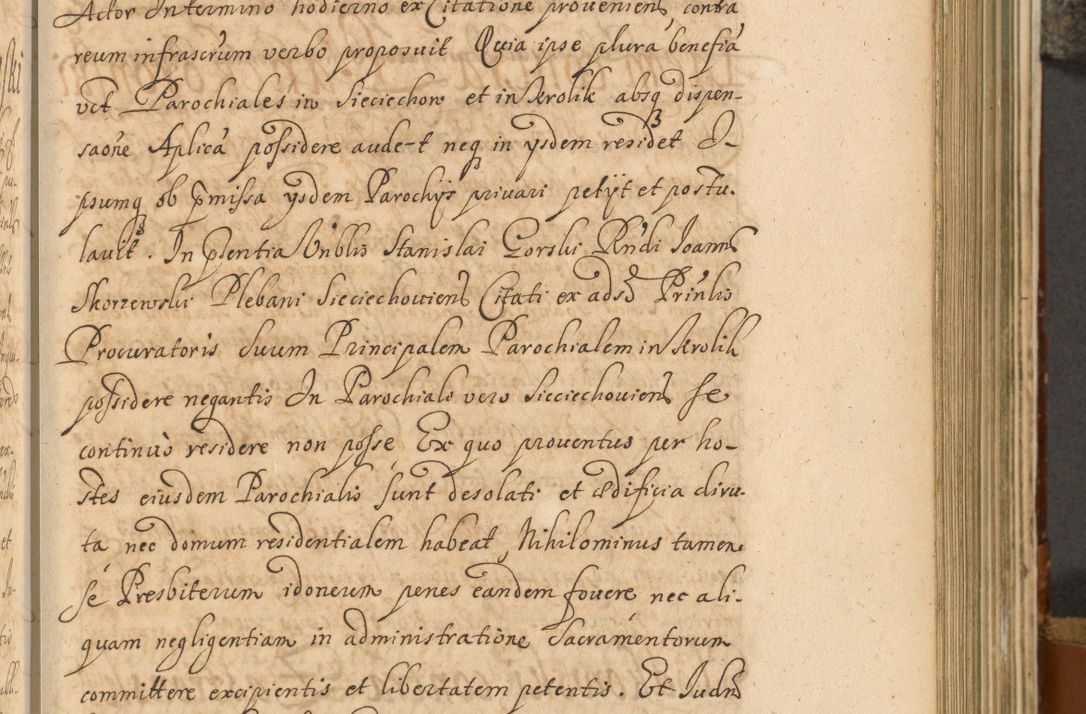 Actor In termino hodierno ex Citatione proveniens contra
reum infrascrum verbo proposuit Quia ipse plura benefia
vct Parochiales in Sieciechow et in Krolik absq dispen-
saoñe Aplica possidere audet neq in ysdem residet I-
psumq ob pmissa ysdem Parochijs privari petijt et postu-
lavit. In pſentia Nnblis Stanislai Gorski Rndi Joannis
Skorzewski Plebani Sieciechoviens Citati ex adso Prinlis
Procuratoris suum Principalem Parochialem in Krolik
possidere negantis In Parochiali vero Sieciechoviens se
continuo residere non posse Ex quo proventus per ho-
stes eiusdem Parochialis sunt desolati et ædificia diru-
ta nec domum residentialem habeat, Nihilominus tamen
se Presbiterum idoneum penes eandem fovere nec ali-
quam negligentiam in administratione Sacramentorum
committere excipientis et libertatem petentis. Et Judns